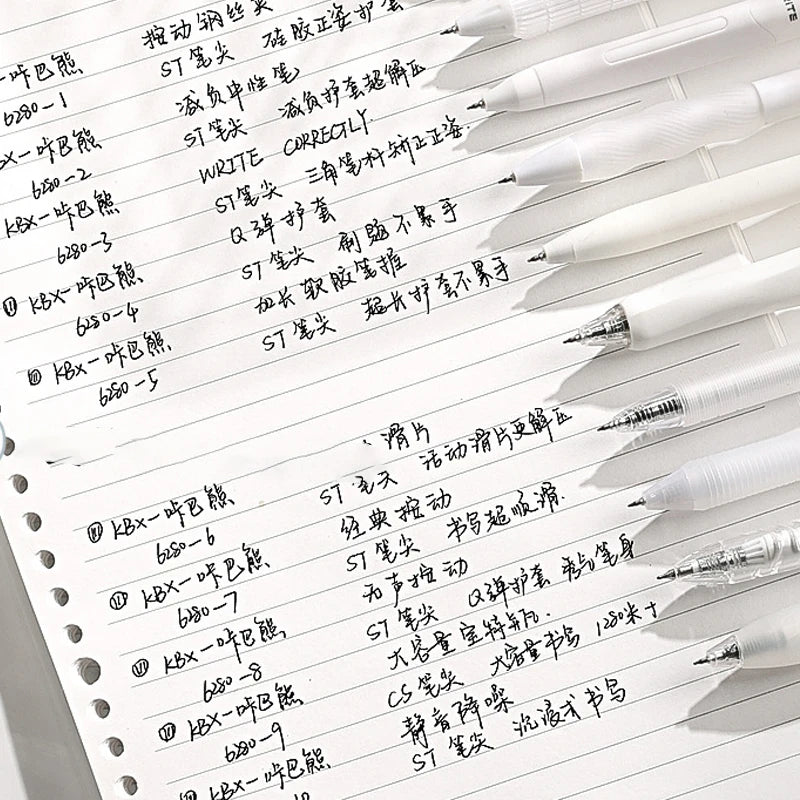 按动钢丝夹
一咔巴熊 ST笔尖 硅胶正姿护套
6280-1 减负中性笔
KBX一咔巴熊 ST笔尖 减负护套超解压
6280-2 WRITE CORRECTLY
KBX一咔巴熊 ST笔尖 三角笔杆矫正正姿
6280-3 Q弹护套
KBX一咔巴熊 ST笔尖 刷题不累手
6280-4 加长软胶笔握
KBX一咔巴熊 ST笔尖 超长护套不累手
6280-5
滑片
KBX一咔巴熊 ST笔尖 活动滑片更解压
6280-6 经典按动
KBX一咔巴熊 ST笔尖 书写超顺滑.
6280-7 无声按动
KBX一咔巴熊 ST笔尖 Q弹护套 笔身
6280-8 大容量
KBX一咔巴熊 CS笔尖 大容量书写 1280米+
6280-9 静音降噪
KBX一咔巴熊 ST笔尖 沉浸式书写
10